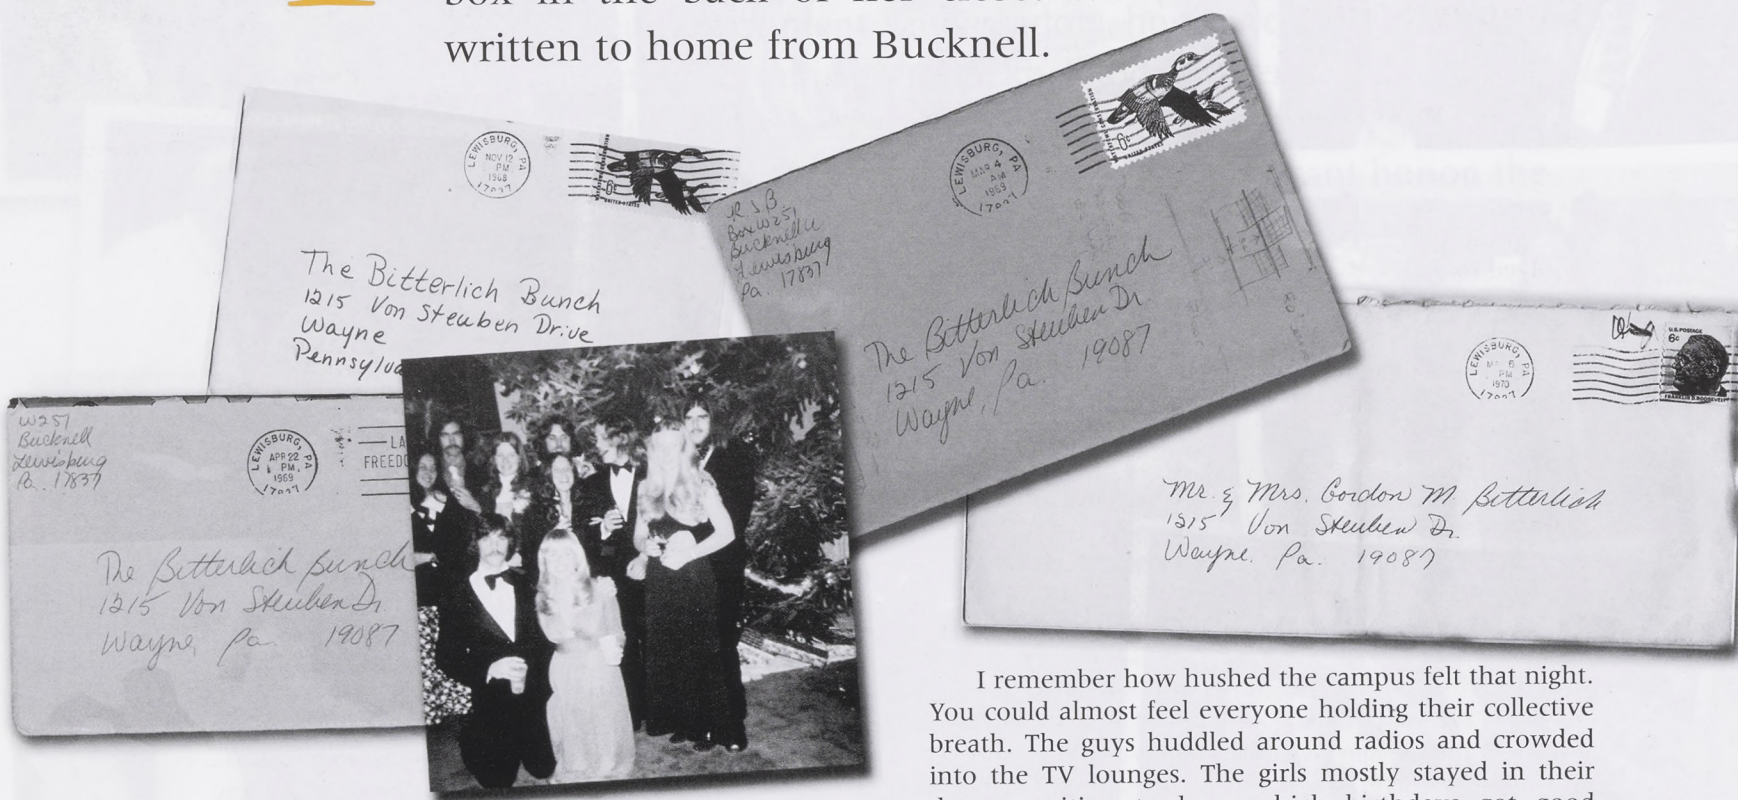 written to home from Bucknell.
LEWISBURG, PA
NOV 12
PM
1968
6¢
UNITED STATES
The Bitterlich Bunch
1215 Von Steuben Drive
Wayne
Pennsylva
R S B
Box W251
Bucknell U
Lewisburg
Pa. 17837
LEWISBURG, PA
MAR 4
AM
1969
6¢
UNITED STATES
The Bitterlich Bunch
1215 Von Steuben Dr.
Wayne, Pa. 19087
W251
Bucknell
Lewisburg
Pa. 17837
LEWISBURG, PA
APR 22
PM
1969
LA
FREEDO
The Bitterlich Bunch
1215 Von Steuben Dr
Wayne, Pa. 19087
LEWISBURG, PA
PM
1970
U.S. POSTAGE
6¢
FRANKLIN D. ROOSEVELT
Mr. & Mrs. Gordon M Bitterlich
1215 Von Steuben Dr.
Wayne. Pa. 19087
I remember how hushed the campus felt that night.
You could almost feel everyone holding their collective
breath. The guys huddled around radios and crowded
into the TV lounges. The girls mostly stayed in their